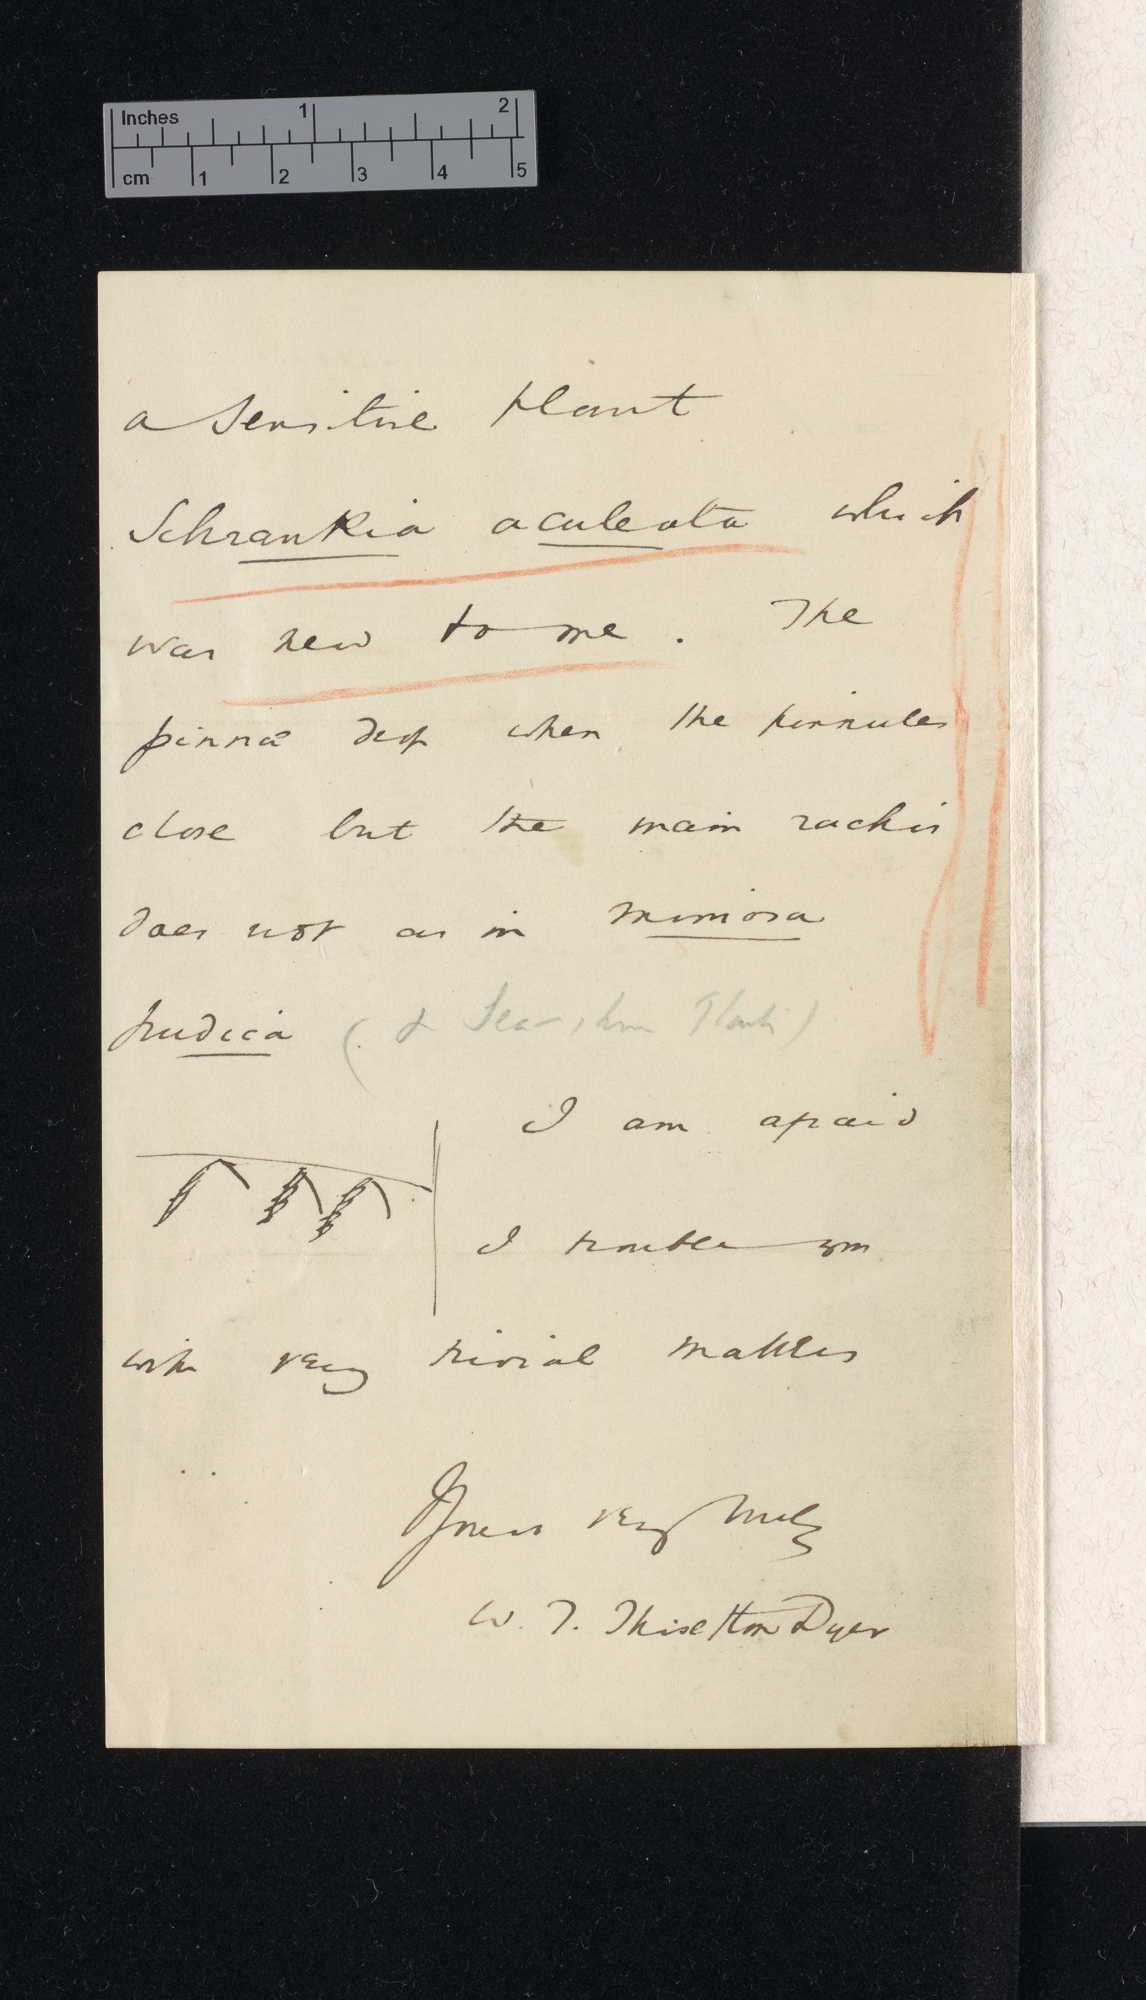 Inches 1 2
cm 1 2 3 4 5
a sensitive plant
Schrankia aculeata which
was new to me. The
pinnæ drop when the pinnules
close but the main rachis
does not as in Mimosa
pudica (&
I am afraid
I trouble you
with very trivial matters
Yours very truly
W. T. Thiselton Dyer